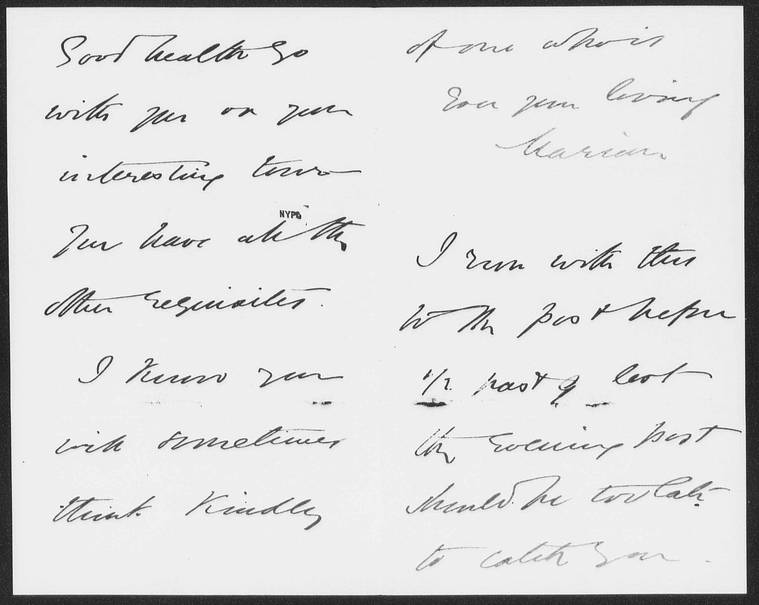 Good health go
with you on your
interesting tour
NYPG
You have all the
other requisites.
I know you
will sometimes
think kindly
of one who is
Ever your loving
Marian
I run with this
to the post before
1/2 past 9 lest
the evening post
should be too late
to catch you.